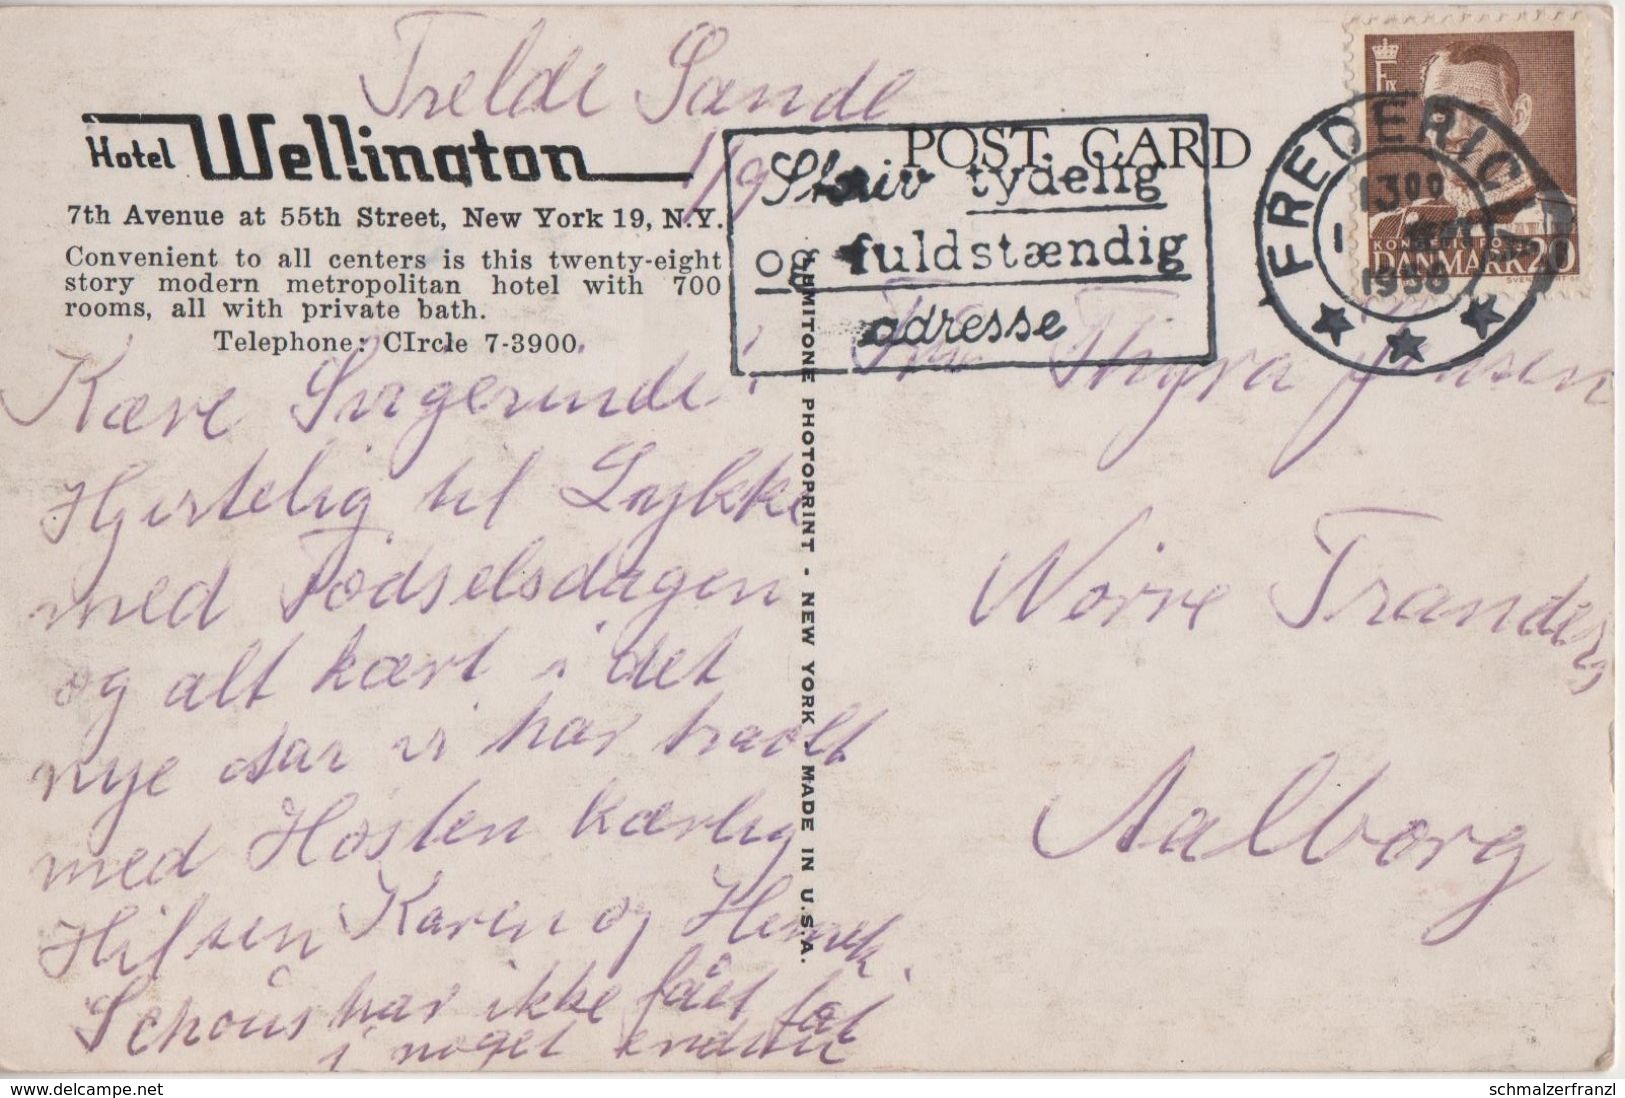 Trelde Sande
1/9
Hotel Wellington
7th Avenue at 55th Street, New York 19, N.Y.
Convenient to all centers is this twenty-eight
story modern metropolitan hotel with 700
rooms, all with private bath.
Telephone: CIrcle 7-3900
Kære Svigerinde!
Hjertelig til Lykke
med Fødselsdagen
og alt kært i det
nye Aar vi har traalt
med Høsten kærlig
Hilsen Karen og Henrik.
Schous har ikke fået fat
i noget endnu
LUMITONE PHOTOPRINT - NEW YORK - MADE IN U.S.A.
POST CARD
Skriv tydelig
og fuldstændig
adresse
FREDERICIA
13 00
1
1956
KONGELIG POST
DANMARK 20
Fru Thyra Jensen
Nørre Tranders
Aalborg
www.delcampe.net
schmalzerfranzl